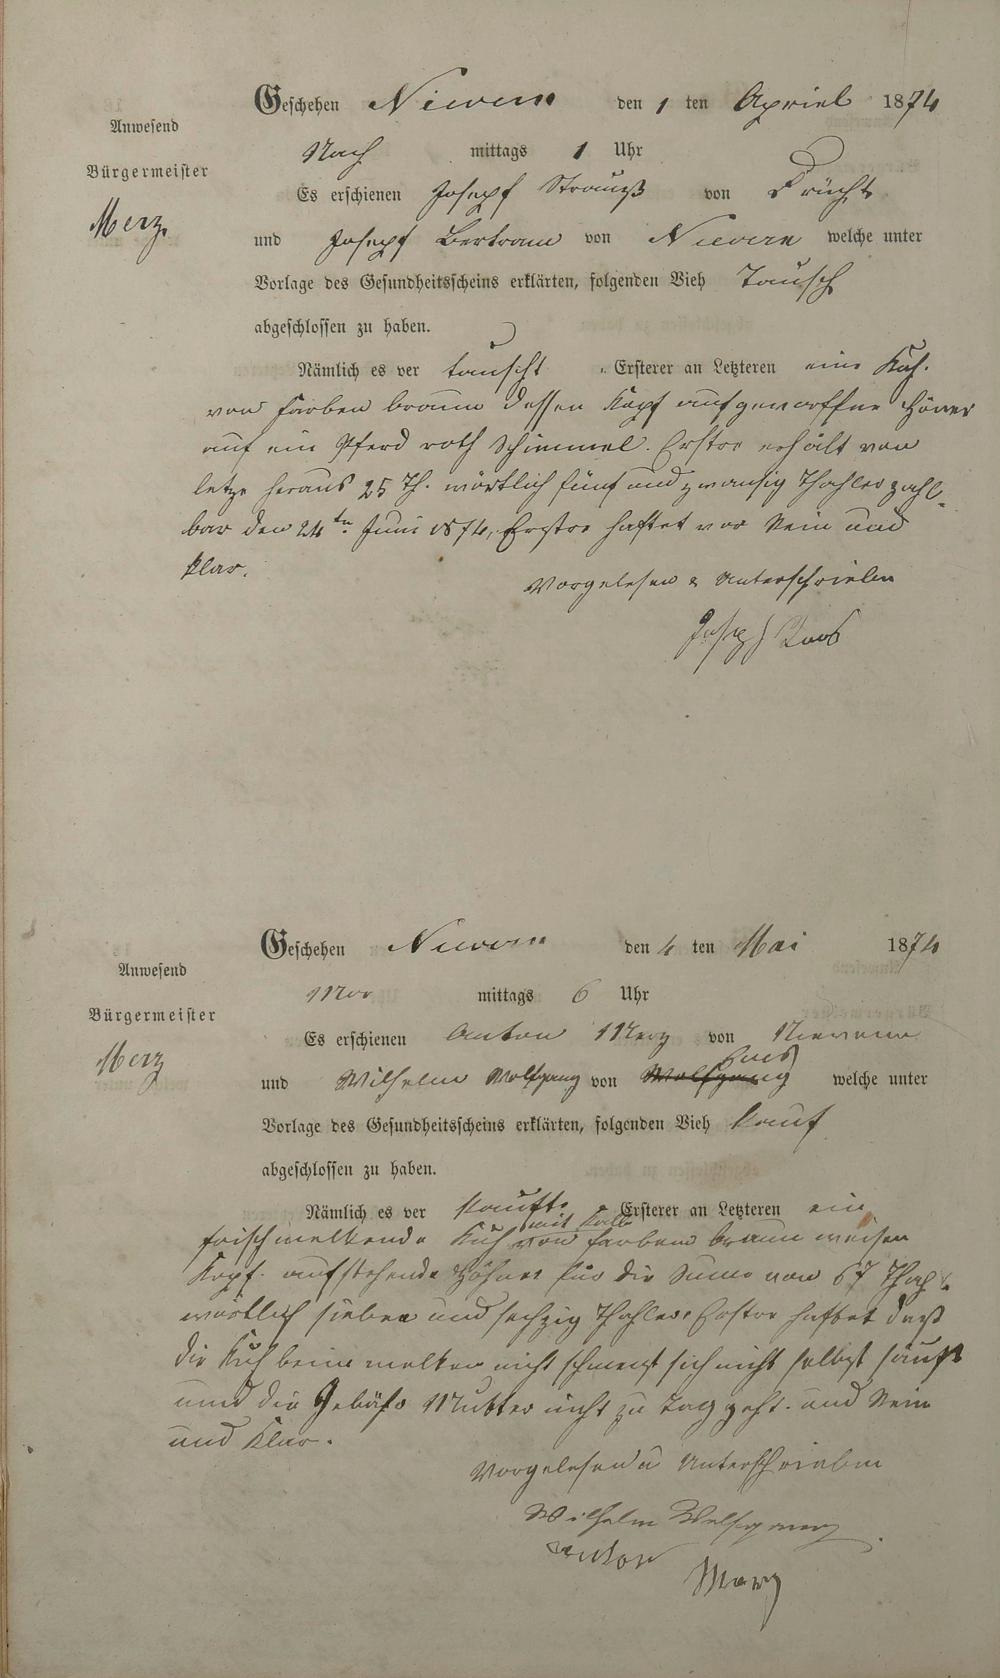 Geschehen Nievern den 1 ten Apriel 1874
Anwesend
Nach mittags 1 Uhr
Bürgermeister
Es erschienen Josepf Strauß von Früchte
Merz.
und Josepf Bertram von Nievern welche unter
Vorlage des Gesundheitsscheins erklärten, folgenden Vieh Tausch
abgeschlossen zu haben.
Nämlich es ver tauscht Ersterer an Letzteren eine Kuh.
von farben braun dessen Kopf aufgeworffne Höner
auf ein Pferd roth Schimmel. Erstre erhält von
letze heraus 25 Th. wörtlich fünf und zwansig Thahler zahl-
bar den 24ten Juni 1874, Erstre haftet vor Rein und
klar.
Vorgelesen & Unterschrieben
Joseph
Geschehen Nievern den 4 ten Mai 1874
Anwesend
Vor mittags 6 Uhr
Bürgermeister
Es erschienen Anton Merz von Nievern
Merz
Ems
und Wilhelm Wolfgang von Wolfgang welche unter
Vorlage des Gesundheitsscheins erklärten, folgenden Vieh kauf
abgeschlossen zu haben.
Nämlich es ver kaufte Ersterer an Letzteren ein
mit Kalb
frischmelkende Kuh von farben braun weisen
Kopf. aufstehende Höhner für die Sume von 67 Thahl
wörtlich sieben und sechzig Thahler. Erstre haftet daß
die Kuh beim melken nicht schmeist sich nicht selbst säuft
und die Gebähr Mutter nicht zu Tag geht. und Rein
und Klar.
Vorgelesen u Unterschrieben
Wilhelm Wolfgang
Anton Merz